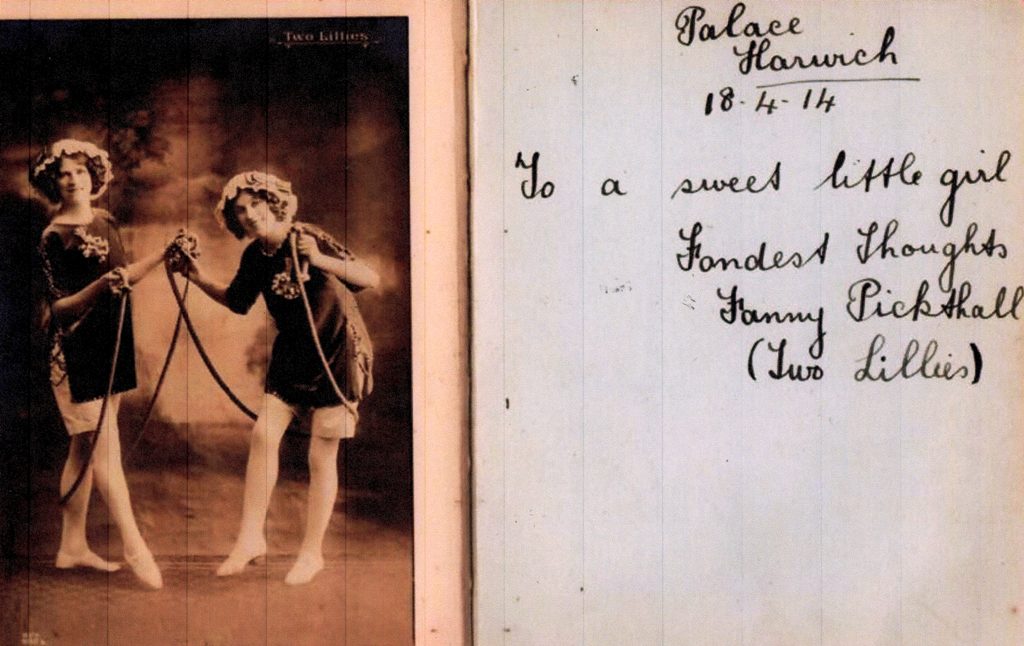 Two Lillies
Palace
Harwich
18-4-14
To a sweet little girl
Fondest Thoughts
Fanny Pickthall
(Two Lillies)